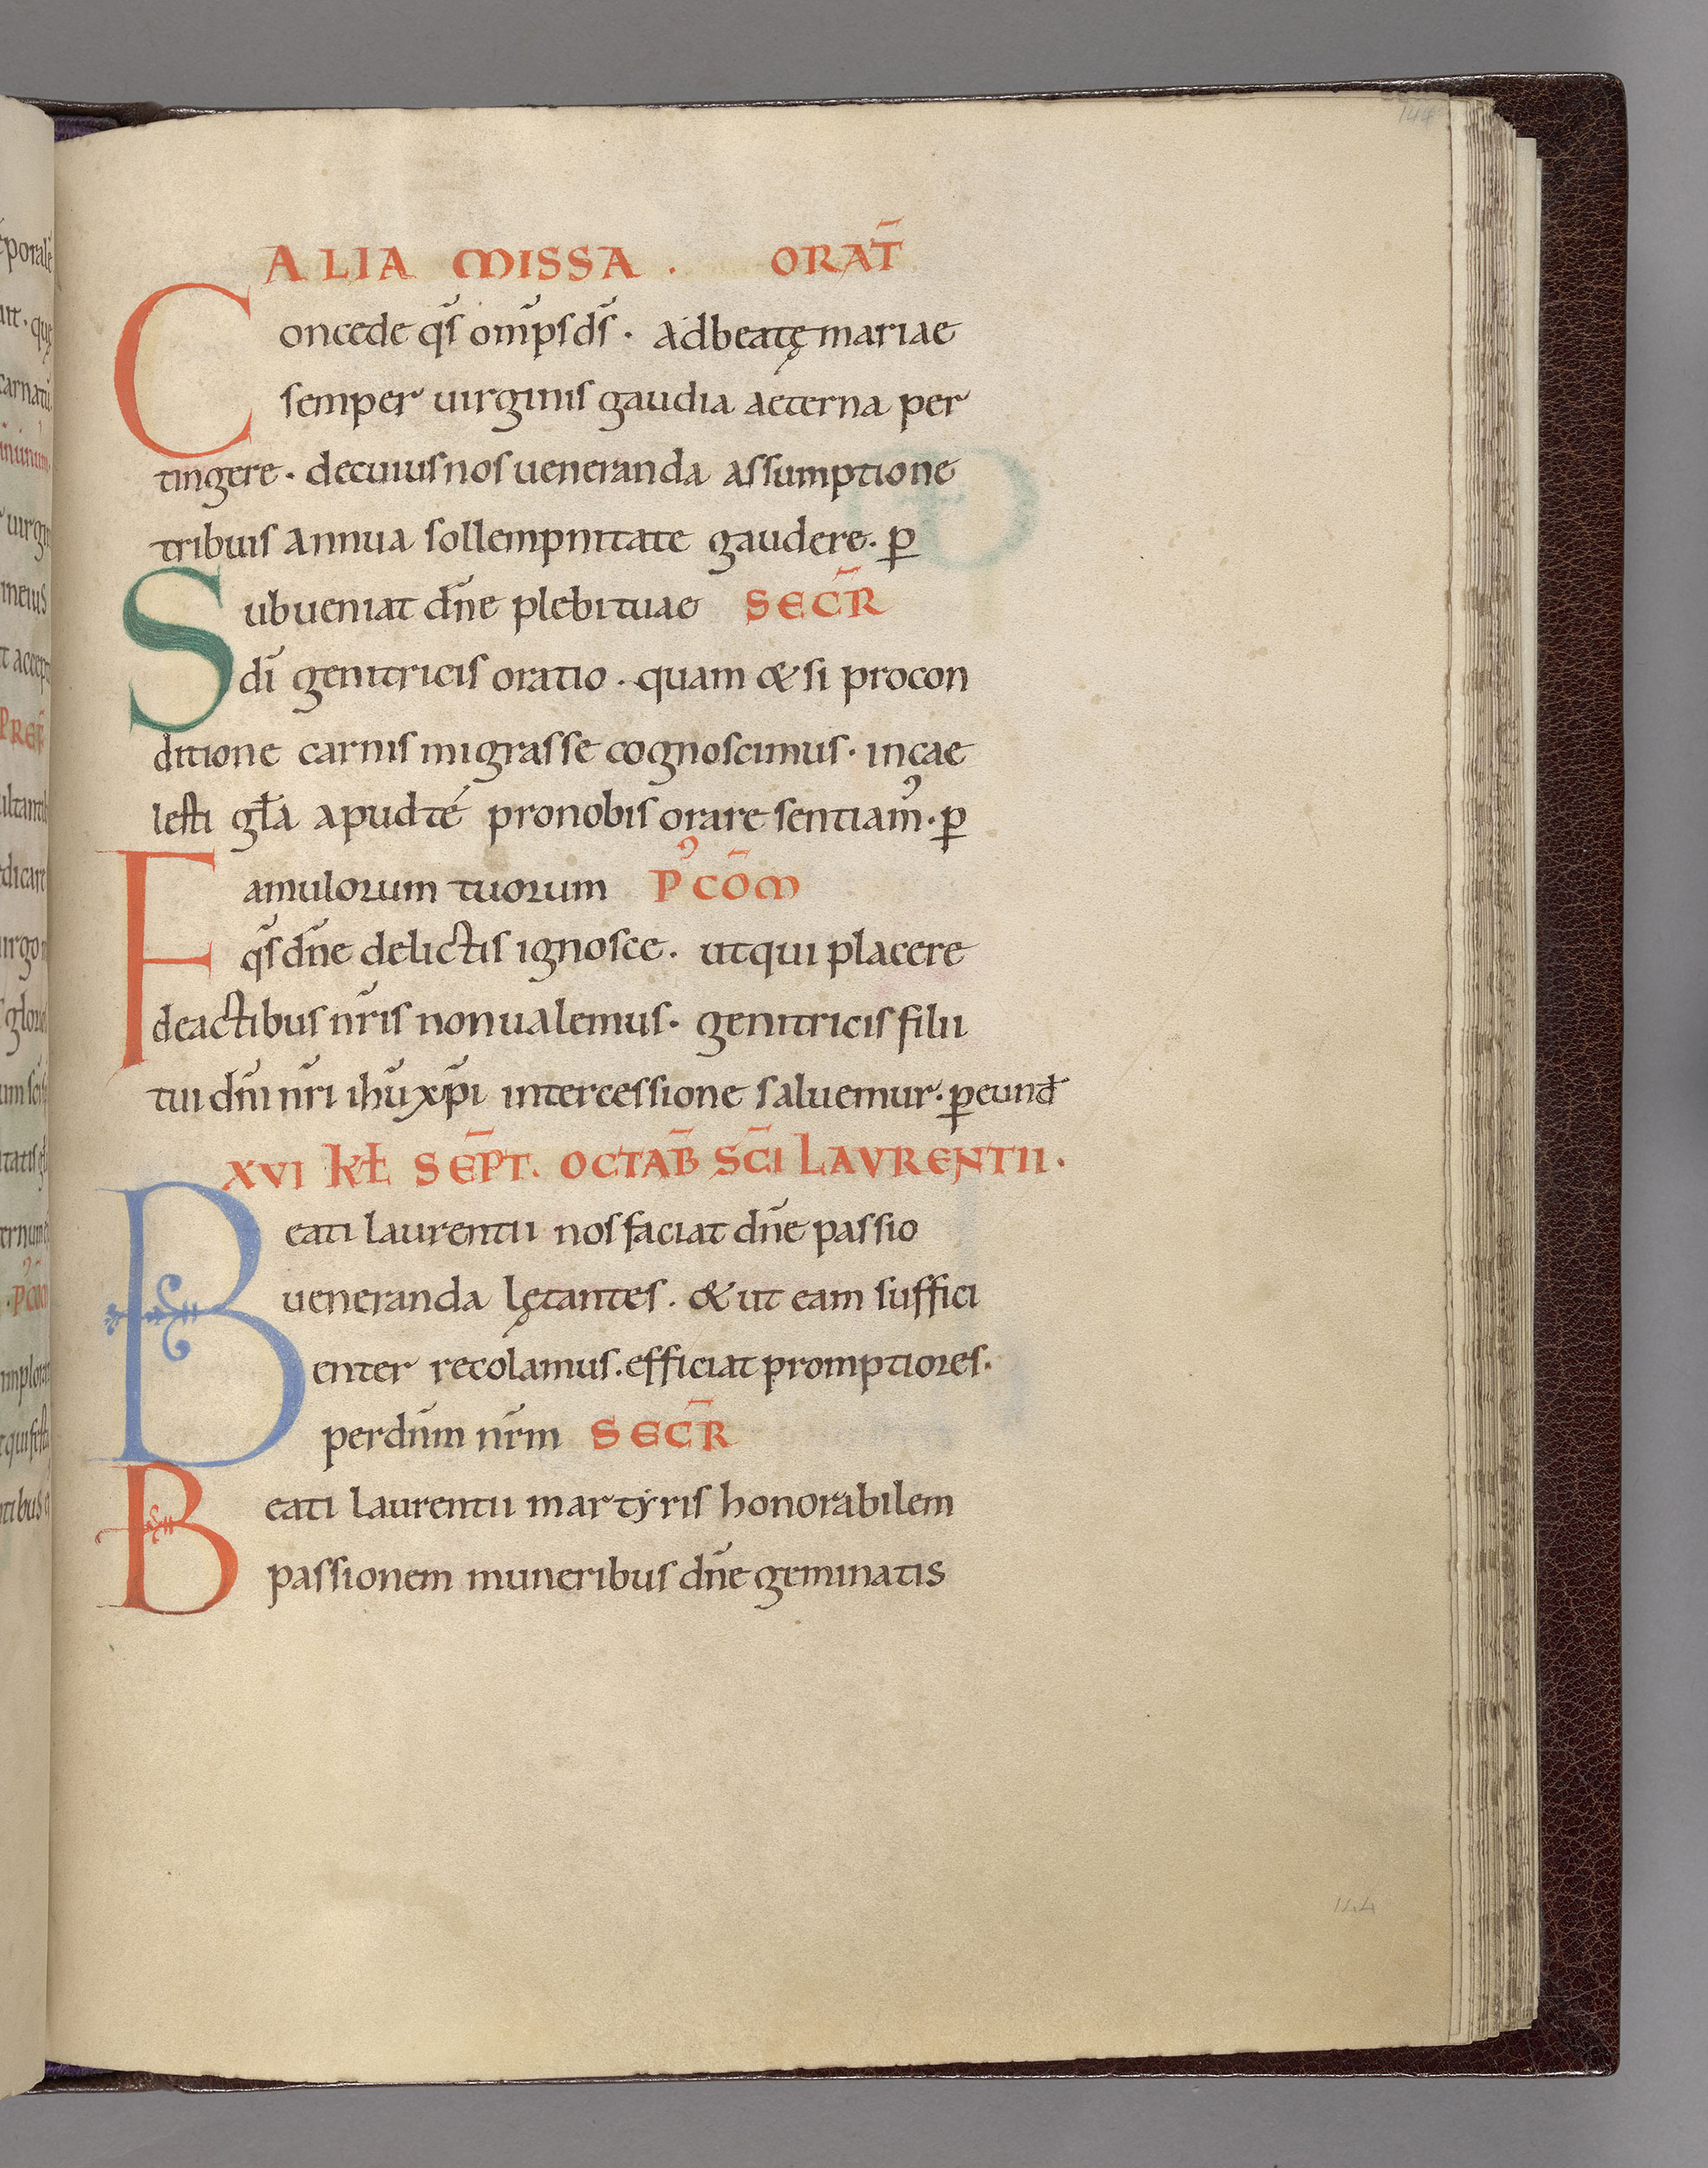 144
ALIA MISSA . ORAT̄
Concede q̄s om̄ps d̄s · ad beatę mariae
semper uirginis gaudia aeterna per
tingere · de cuius nos ueneranda assumptione
tribuis annua sollempnitate gaudere · ꝑ
Subueniat dn̄e plebi tuae SECR̄
dī genitricis oratio · quam & si pro con
ditione carnis migrasse cognoscimus · in cae
lesti gła apud té pro nobis orare sentiam᾿ · ꝑ
Famulorum tuorum P᾿ CŌM
q̄s dn̄e delictis ignosce · ut qui placere
de actibus nr̄is non ualemus · genitricis filii
tui dn̄i nr̄i ihū xp̄i intercessione saluemur · ꝑ eund̄
XVI KŁ SEP̄T. OCTAB̄ SC̄I LAVRENTII ·
Beati laurentii nos faciat dn̄e passio
ueneranda lętantes . & ut eam suffici
enter recolamus . efficiat promptiores ·
per dn̄m nr̄m SECR̄
Beati laurentii martyris honorabilem
passionem muneribus dn̄e geminatis
144